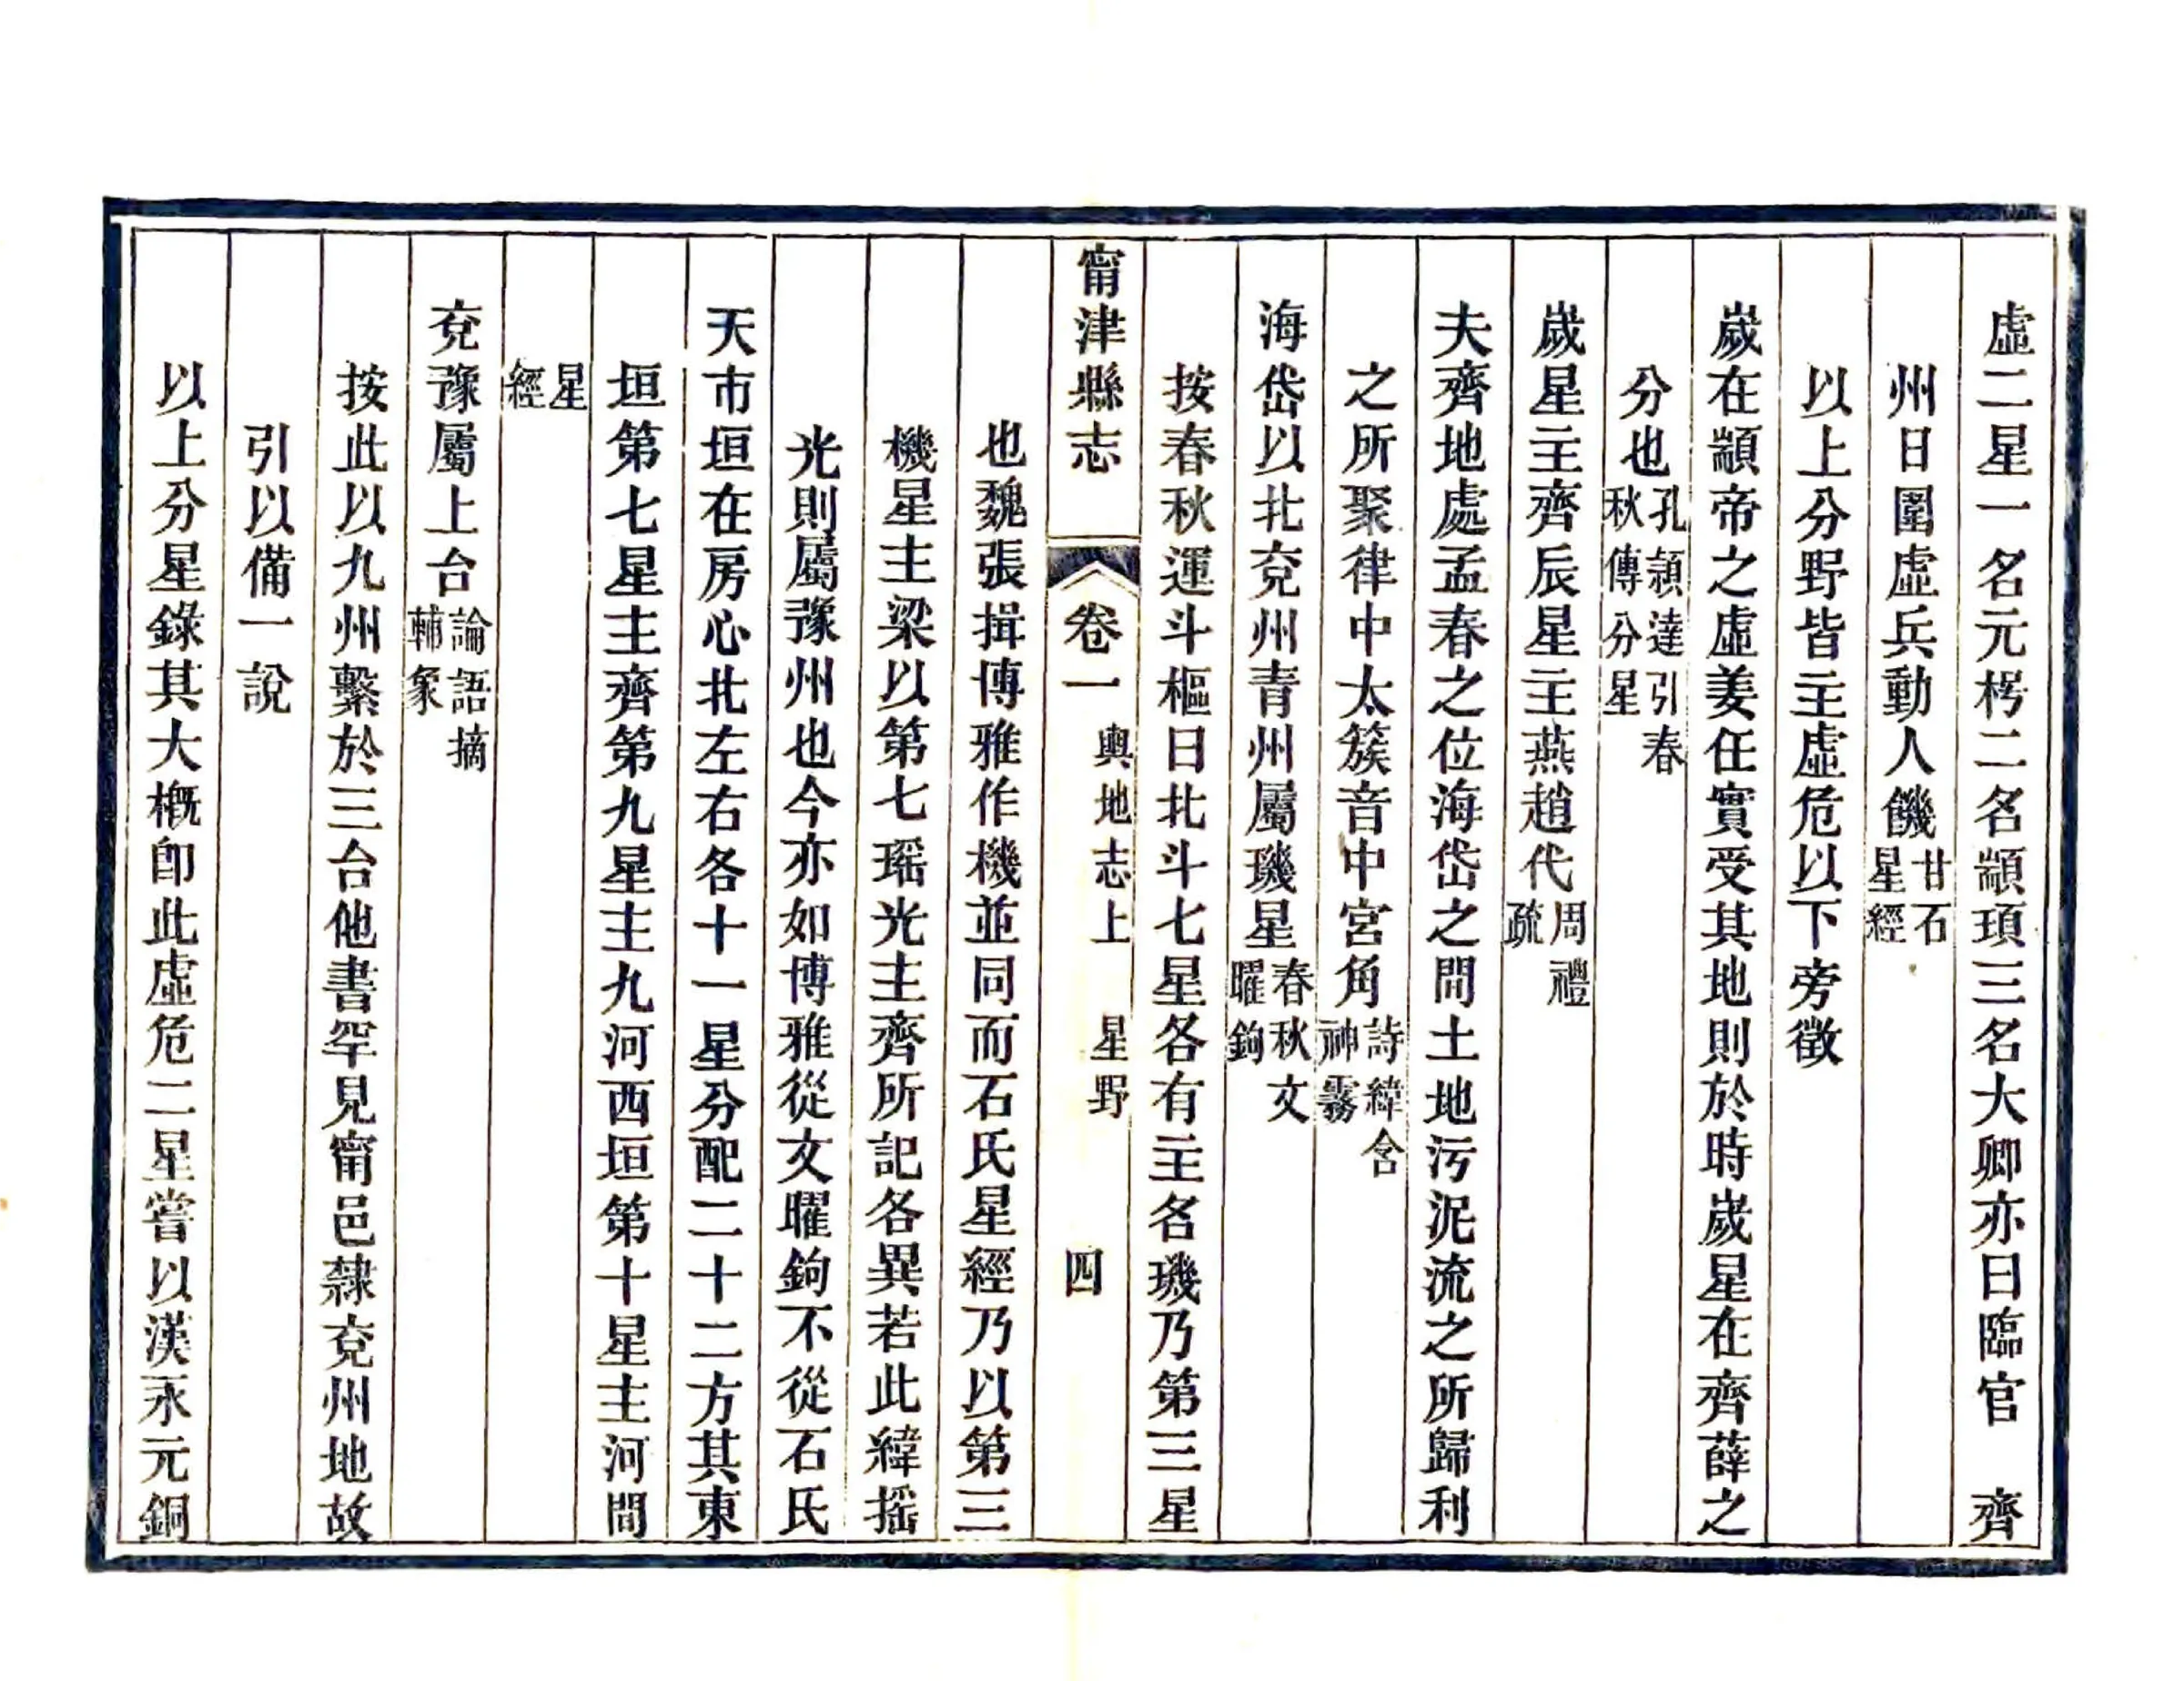 虛二星一名元枵二名顓頊三名大卿亦曰臨官　齊
州日圍虛兵動人饑甘石星經
以上分野皆主虛危以下旁徵
歲在顓帝之虛姜任實受其地則於時歲星在齊薛之
分也孔頴達引春秋傳分星
歲星主齊辰星主燕趙代周禮疏
夫齊地處孟春之位海岱之間土地污泥流之所歸利
之所聚律中太簇音中宮角詩緯含神霧
海岱以北兗州青州屬璣星春秋文曜鉤
按春秋運斗樞曰北斗七星各有主名璣乃第三星
甯津縣志　卷一　輿地志上　星野　四
也魏張揖博雅作機並同而石氏星經乃以第三
機星主梁以第七瑤光主齊所記各異若此緯搖
光則屬豫州也今亦如博雅從文曜鉤不從石氏
天市垣在房心北左右各十一星分配二十二方其東
垣第七星主齊第九星主九河西垣第十星主河間
星經
兗豫屬上台論語摘輔象
按此以九州繫於三台他書罕見甯邑隸兗州地故
引以備一說
以上分星錄其大概卽此虛危二星嘗以漢永元銅